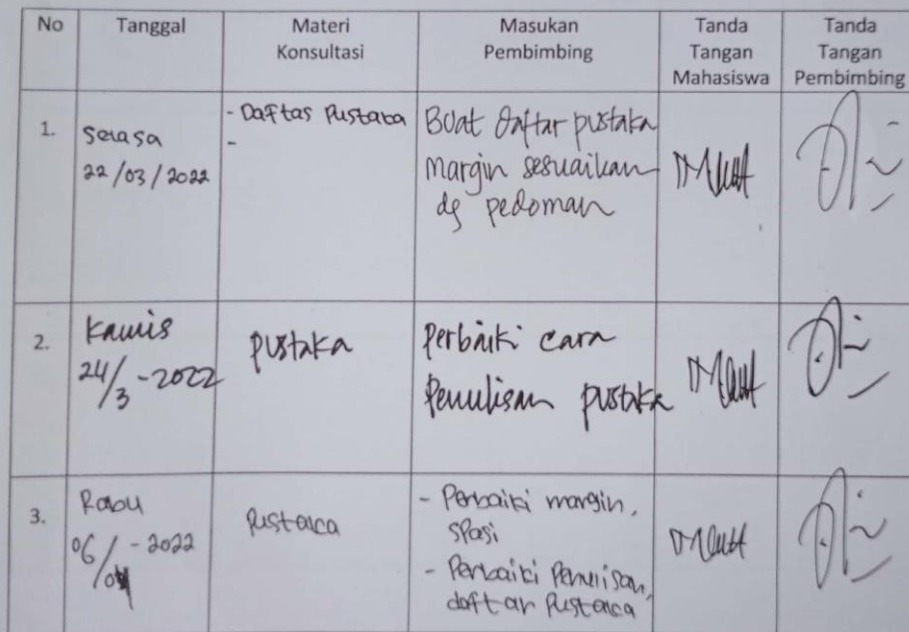 No
Tanggal
Materi
Konsultasi
Masukan
Pembimbing
Tanda
Tangan
Mahasiswa
Tanda
Tangan
Pembimbing
1.
Selasa
22/03/2022
- Daftas Pustaka
-
Buat daftar pustaka
margin sesuaikan
dg pedoman
2.
Kamis
24/3-2022
pustaka
Perbaiki cara
Penulisan pustaka
3.
Rabu
06/04-2022
Pustaka
- Perbaiki margin,
spasi
- Perbaiki Penulisan,
daftar Pustaka